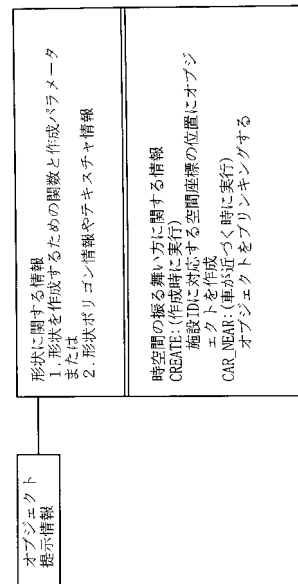 オブジェクト
提示情報
形状に関する情報
1. 形状を作成するための関数と作成パラメータ
または
2. 形状ポリゴン情報やテキスチャ情報
時空間の振る舞い方に関する情報
CREATE:(作成時に実行)
施設IDに対応する空間座標の位置にオブジ
ェクトを作成
CAR_NEAR:(車が近づく時に実行)
オブジェクトをブリンキングする